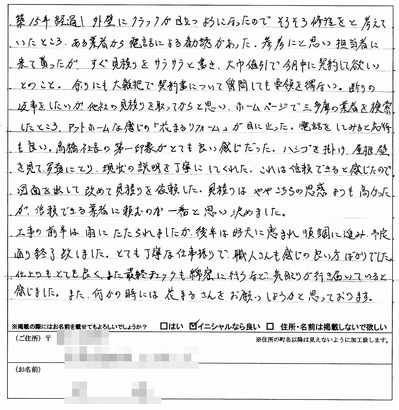 築15年経過し外壁にクラックが目立つようになったのでそろそろ修繕をと考えて
いたところ、ある業者から電話による勧誘があった。参考にと思い担当者に
来て貰ったが、すぐ見積りをサラサラと書き、大巾値引で今月中に契約して欲しい
とのこと。余りにも大雑把で契約事について質問しても要領を得ない。断りの
返事をしたいが他社の見積りを取ってからと思い、ホームページで三多摩の業者を検索
したところ、アットホームな感じの「花まるリフォーム」が目に止った。電話をしてみると応対
も良い。高橋社長の第一印象がとても良い感じだった。ハシゴを掛け、屋根、壁
を見て、写真にとり、現状の説明を丁寧にしてくれた。これは信頼できると感じたので
図面を出して改めて見積りを依頼した。見積りはややこちらの思惑よりも高かった
が、信頼できる業者に頼むのが一番と思い決めました。
工事の前半は雨にたたられましたが後半は好天に恵まれ順調に進み、予定
通り終了致しました。とても丁寧な仕事振りで、職人さんも感じの良い方ばかりでした。
仕上りもとても良く、また最終チェックも綿密に行うなど気配りが行き届いていると
感じました。また、何かの時には花まるさんをお願いしようかと思っております。
※掲載の際にはお名前を載せてもよろしいでしょうか？ □はい ☑イニシャルなら良い □ 住所・名前は掲載しないで欲しい
（ご住所）〒 ※住所の町名以降は見えないように加工致します。
（お名前）